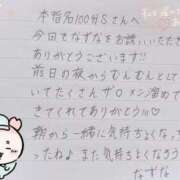 本指名100分Sさんへ
今日もなずなをお誘いいただき
ありがとうございます!!
前日の夜からむんむんとして
いてたくさんザーメン溜めて
きてくれてありがとう
朝から一緒に気持ちよくなっちゃ
ったねまた気持ちよくなろうね
なずな